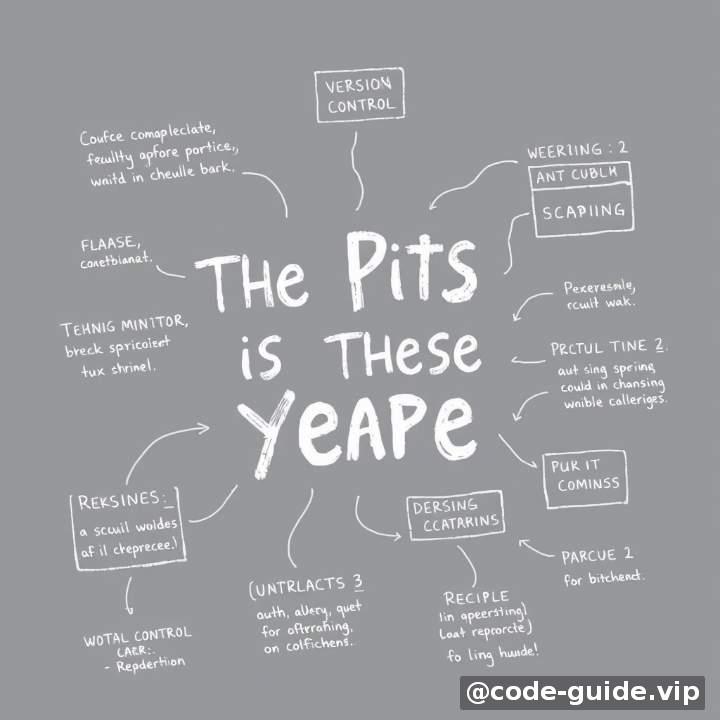 VERSION
CONTROL
Coufce comapleclate,
feculity apfore portice,,
wnitd in cheulle bark.
WEERIING : 2
ANT CUBLH
SCAPIING
FLAASE,
conetbianat.
THE PITS
IS THESE
YEAPE
Pexeresmle,
rcult wak.
TEHNIG MINTTOR,
breck spricolent
tux shrinel.
PRCTUL TINE 2.
aut sing spring
could in chansing
wnible calleriges.
PUR IT
COMINSS
REKSINES:
a scuuil woldes
af il cheprecee.)
DERSING
CCATARINS
PARCUE 2
for bitchenct.
(UNTRLACTS 3
auth, allery, quet
for oftrrahing,
on colfichens.
RECIPLE
(in apeersting)
(aat reporcte)
fo ling huude!
WOTAL CONTROL
CAER:.
- Repdertiion
@code-guide.vip